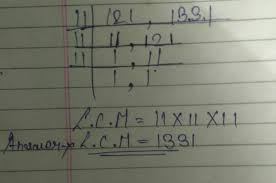 11 | 121 , 1331
11 | 11 , 121
11 | 1 , 11
1 , 1
L.C.M = 11 X 11 X 11
Answer→ L.C.M = 1331